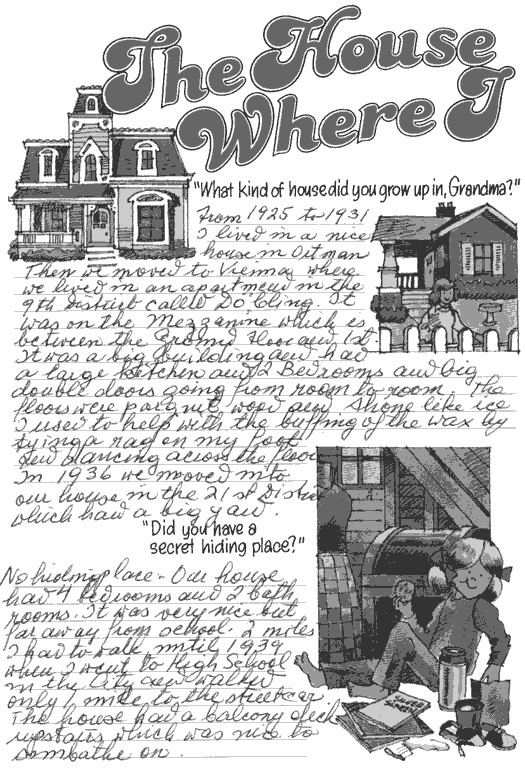 The House
Where I
"What kind of house did you grow up in, Grandma?"
From 1925 to 1931
I lived in a nice
house in Oitman
Then we moved to Vienna, where
we lived in an apartment in the
9th District called Dö bling. It
was on the Mezzanine which is
between the Ground Floor and 1st.
It was a big building and had
a large kitchen and 2 Bedrooms and big
double doors going from room to room. The
floors were parquet wood and shone like ice
I used to help with the buffing of the wax by
tying a rag on my foot
and dancing across the floor
In 1936 we moved into
our house in the 21st District
which had a big yard.
"Did you have a
secret hiding place?"
No hiding place - Our house
had 4 bedrooms and 2 bath
rooms. It was very nice but
far away from school. 2 miles
I had to walk until 1939
when I went to High School
in the City and walked
only 1 mile to the streetcar
The house had a balcony deck
upstairs which was nice to
sunbathe on.